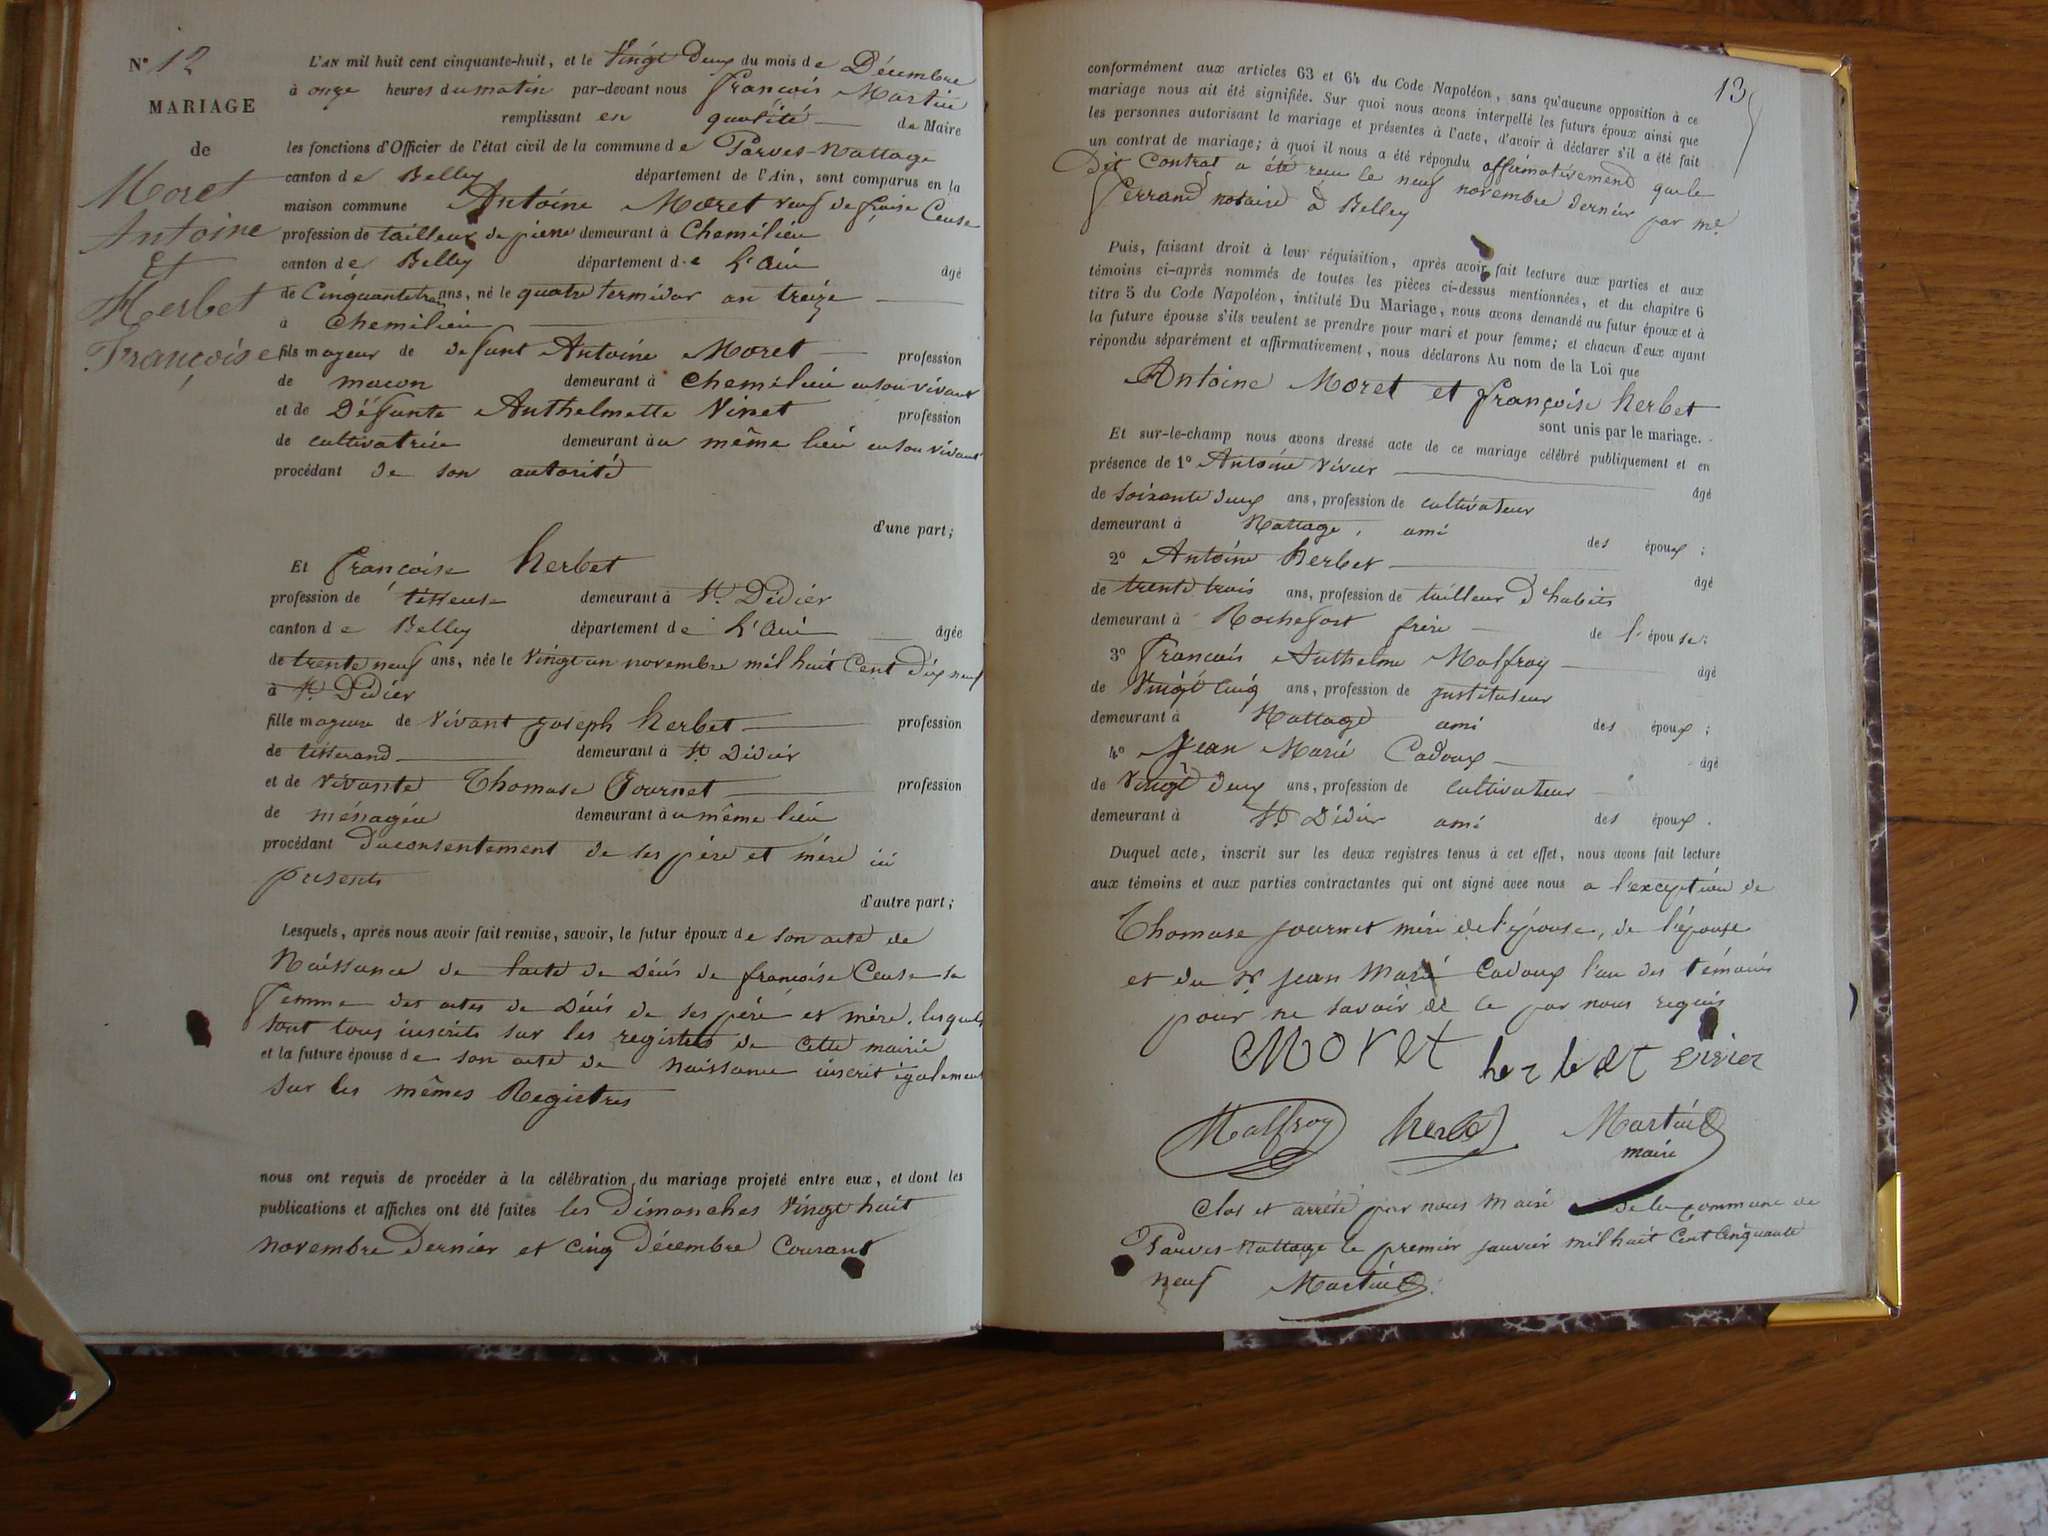 N° 12
MARIAGE
de
Moret
Antoine
Et
Herbet
Françoise
L'AN mil huit cent cinquante-huit, et le Vingt Deux du mois de Décembre
à onze heures du matin par-devant nous François Martin
remplissant en qualité de Maire
les fonctions d'Officier de l'état civil de la commune de Parves-Nattage
canton de Belley département de l'Ain, sont comparus en la
maison commune Antoine Moret veuf de Ceuse
profession de tailleur de pierre demeurant à Chemilieu
canton de Belley département de L'Ain âgé
de Cinquante trois ans, né le quatre termidor an treize
à Chemilieu
fils majeur de defunt Antoine Moret profession
de macon demeurant à Chemilieu en son vivant
et de Défunte Anthelmette Vinet profession
de cultivatrice demeurant au même lieu en son vivant
procédant de son autorité
d'une part;
Et françoise herbet
profession de tisseuse demeurant à St Didier
canton de Belley département de L'Ain âgée
de trente neuf ans, née le Vingt un novembre mil huit Cent Dix neuf
à St Didier
fille majeure de Vivant joseph herbet profession
de tisserand demeurant à St Didier
et de Vivante Thomase Journet profession
de ménagère demeurant au même lieu
procédant du consentement de ses père et mère ici
présents
d'autre part;
Lesquels, après nous avoir fait remise, savoir, le futur époux de son acte de
Naissance de lacte de Décès de françoise Ceuse sa
femme des actes de Décès de ses père et mère, lesquels
sont tous inscrits sur les registres de cette mairie
et la future épouse de son acte de naissance inscrit également
sur les mêmes Registres
nous ont requis de procéder à la célébration du mariage projeté entre eux, et dont les
publications et affiches ont été faites les Dimanches Vingt huit
novembre Dernier et cinq Décembre Courant
13
conformément aux articles 63 et 64 du Code Napoléon, sans qu'aucune opposition à ce
mariage nous ait été signifiée. Sur quoi nous avons interpellé les futurs époux ainsi que
les personnes autorisant le mariage et présentes à l'acte, d'avoir à déclarer s'il a été fait
un contrat de mariage; à quoi il nous a été répondu affirmativement que le
Dit Contrat a été recu le neuf novembre dernier par me
ferrand notaire à Belley
Puis, faisant droit à leur réquisition, après avoir fait lecture aux parties et aux
témoins ci-après nommés de toutes les pièces ci-dessus mentionnées, et du chapitre 6
titre 5 du Code Napoléon, intitulé Du Mariage, nous avons demandé au futur époux et à
la future épouse s'ils veulent se prendre pour mari et pour femme; et chacun d'eux ayant
répondu séparément et affirmativement, nous déclarons Au nom de la Loi que
Antoine Moret et françoise herbet
sont unis par le mariage.
Et sur-le-champ nous avons dressé acte de ce mariage célébré publiquement et en
présence de 1° Antoine Vivier âgé
de soixante deux ans, profession de cultivateur
demeurant à Nattage, ami des époux;
2° Antoine herbet âgé
de trente trois ans, profession de tailleur d'habits
demeurant à Rochefort frère de l'épouse;
3° François Anthelme Malfroy âgé
de Vingt cinq ans, profession de justituteur
demeurant à Nattage ami des époux;
4° Jean Marie Cadoux âgé
de Vingt deux ans, profession de cultivateur
demeurant à St Didier ami des époux.
Duquel acte, inscrit sur les deux registres tenus à cet effet, nous avons fait lecture
aux témoins et aux parties contractantes qui ont signé avec nous a l'exception de
Thomase journet mère de l'épouse, de l'épouse
et du Sr jean Marie Cadoux l'un des témoins
pour ne savoir de ce par nous requis
Moret herbet vivier
Malfroy herbet Martin
maire
Clos et arrêté par nous maire de la commune de
Parves-Nattage le premier janvier mil huit Cent Cinquante
neuf Martin